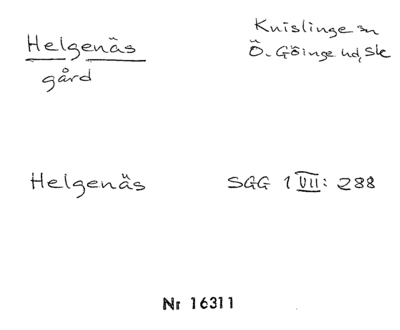 Helgenäs
gård
Knislinge sn
Ö. Göinge hd, Sk
Helgenäs
SGG 1 VII: 288
Nr 16311